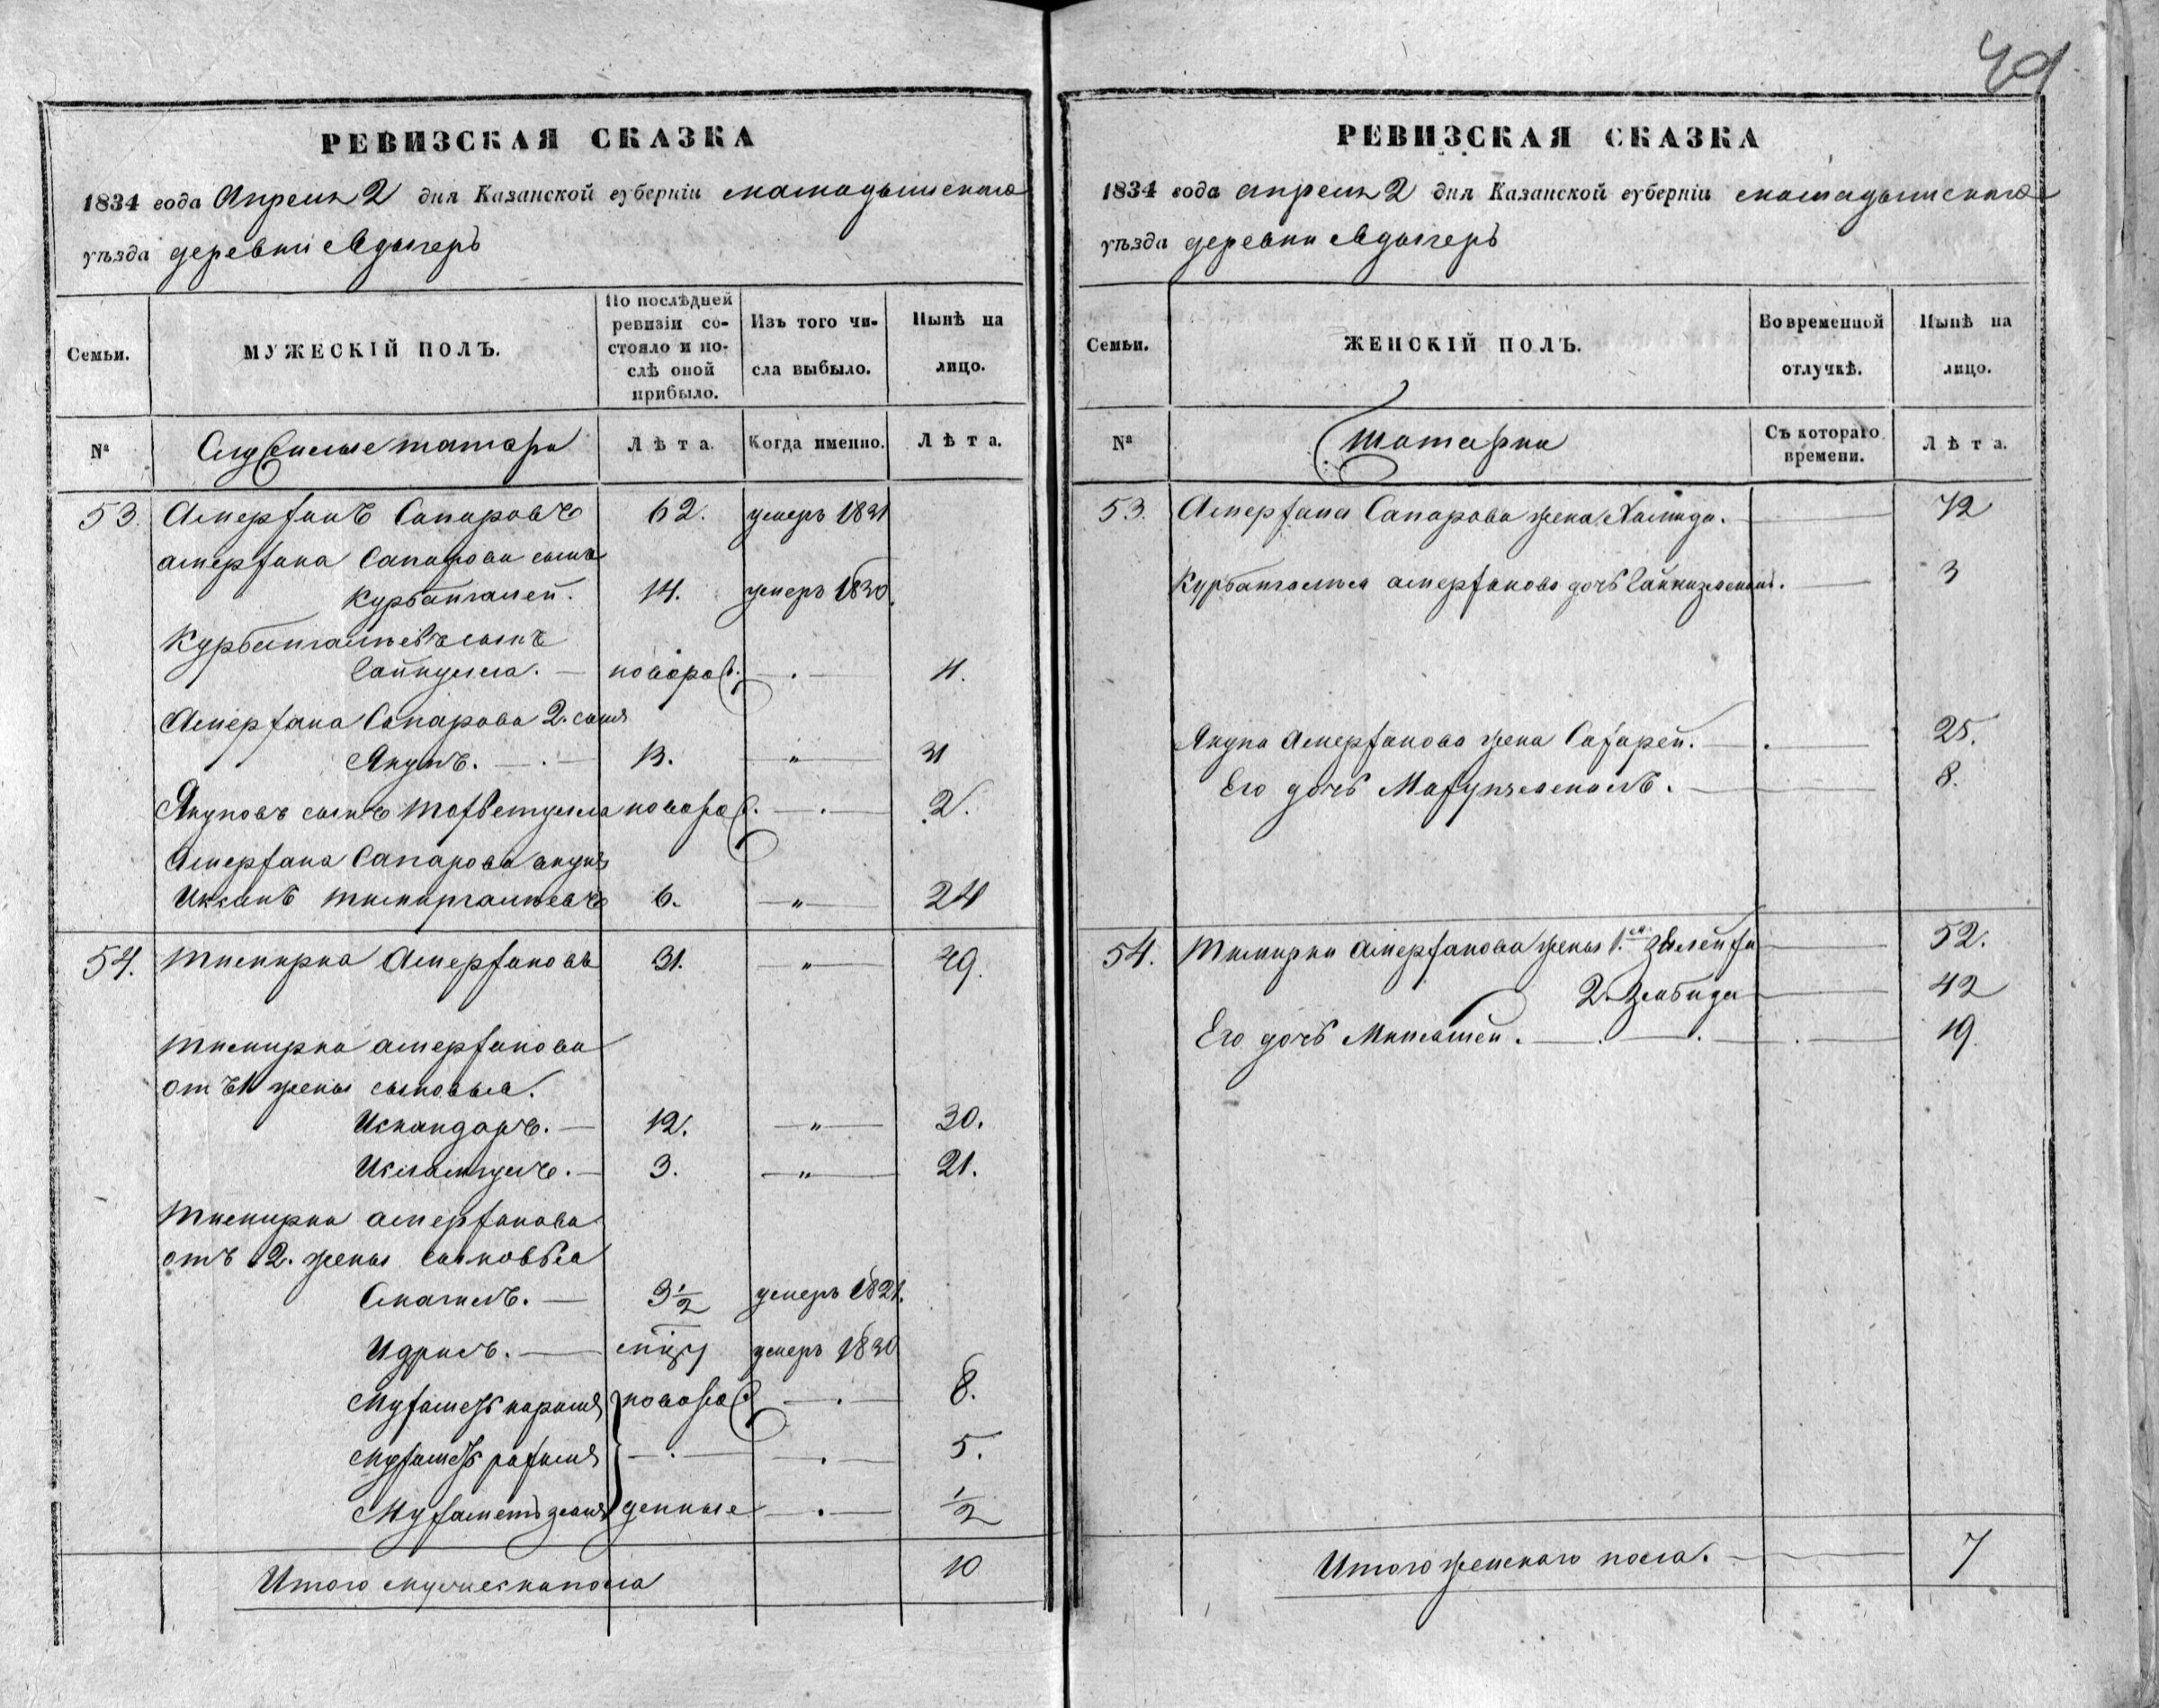 49
РЕВИЗСКАЯ СКАЗКА
1834 года Апреля 2 дня Казанской губерніи мамадышскаго
уѣзда деревни Адыгеръ
Семьи.
МУЖЕСКІЙ ПОЛЪ.
По послѣдней ревизіи состояло и послѣ оной прибыло.
Изъ того числа выбыло.
Нынѣ на лицо.
№
Служилые татара
Лѣта.
Когда именно.
Лѣта.
53. Амерханъ Сапаровъ 62. умеръ 1831
амерхана Сапарова сынъ
Курбангалей. 14. умеръ 1830.
Курбангалѣевъ сынъ
Гайнулла. — новорож. — . — 4.
Амерхана Сапарова 2. сынъ
Якупъ. — . — 13. — " — 31
Якуповъ сынъ Мохветулла новорож. — . — 2.
Амерхана Сапарова внукъ
Иксанъ тимиргалѣевъ 6. — " — 24
54. тимирка Амерхановъ 31. — " — 49.
тимирка амерханова
отъ 1 жены сыновья.
Искандаръ. — 12. — " — 30.
Исламгулъ. — 3. — " — 21.
тимирка амерханова
отъ 2. жены сыновья
Смагилъ. — 3 1/2 умеръ 1821.
Идрисъ. — умеръ 1830
Мухаметъ каримъ новорож — . — 8.
Мухаметъ рахимъ — . — — . — 5.
Мухаметъ денные — . — 1/2
Итого мужеска пола 10
РЕВИЗСКАЯ СКАЗКА
1834 года апреля 2 дня Казанской губерніи мамадышскаго
уѣзда деревни Адыгеръ
Семьи.
ЖЕНСКІЙ ПОЛЪ.
Во временной отлучкѣ.
Нынѣ на лицо.
№
татарки
Съ котораго времени.
Лѣта.
53. Амерхана Сапарова жена Хамида. — 72
Курбангалѣя амерханова дочь — 3
Якупа Амерханова жена Сафарей. — . — 25.
Его дочь — 8.
54. тимирки амерханова жены 1.я Зюлейха — 52.
2. Зюбида — 42
Его дочь . — . — . — . — 19.
Итого женскаго пола. — 7